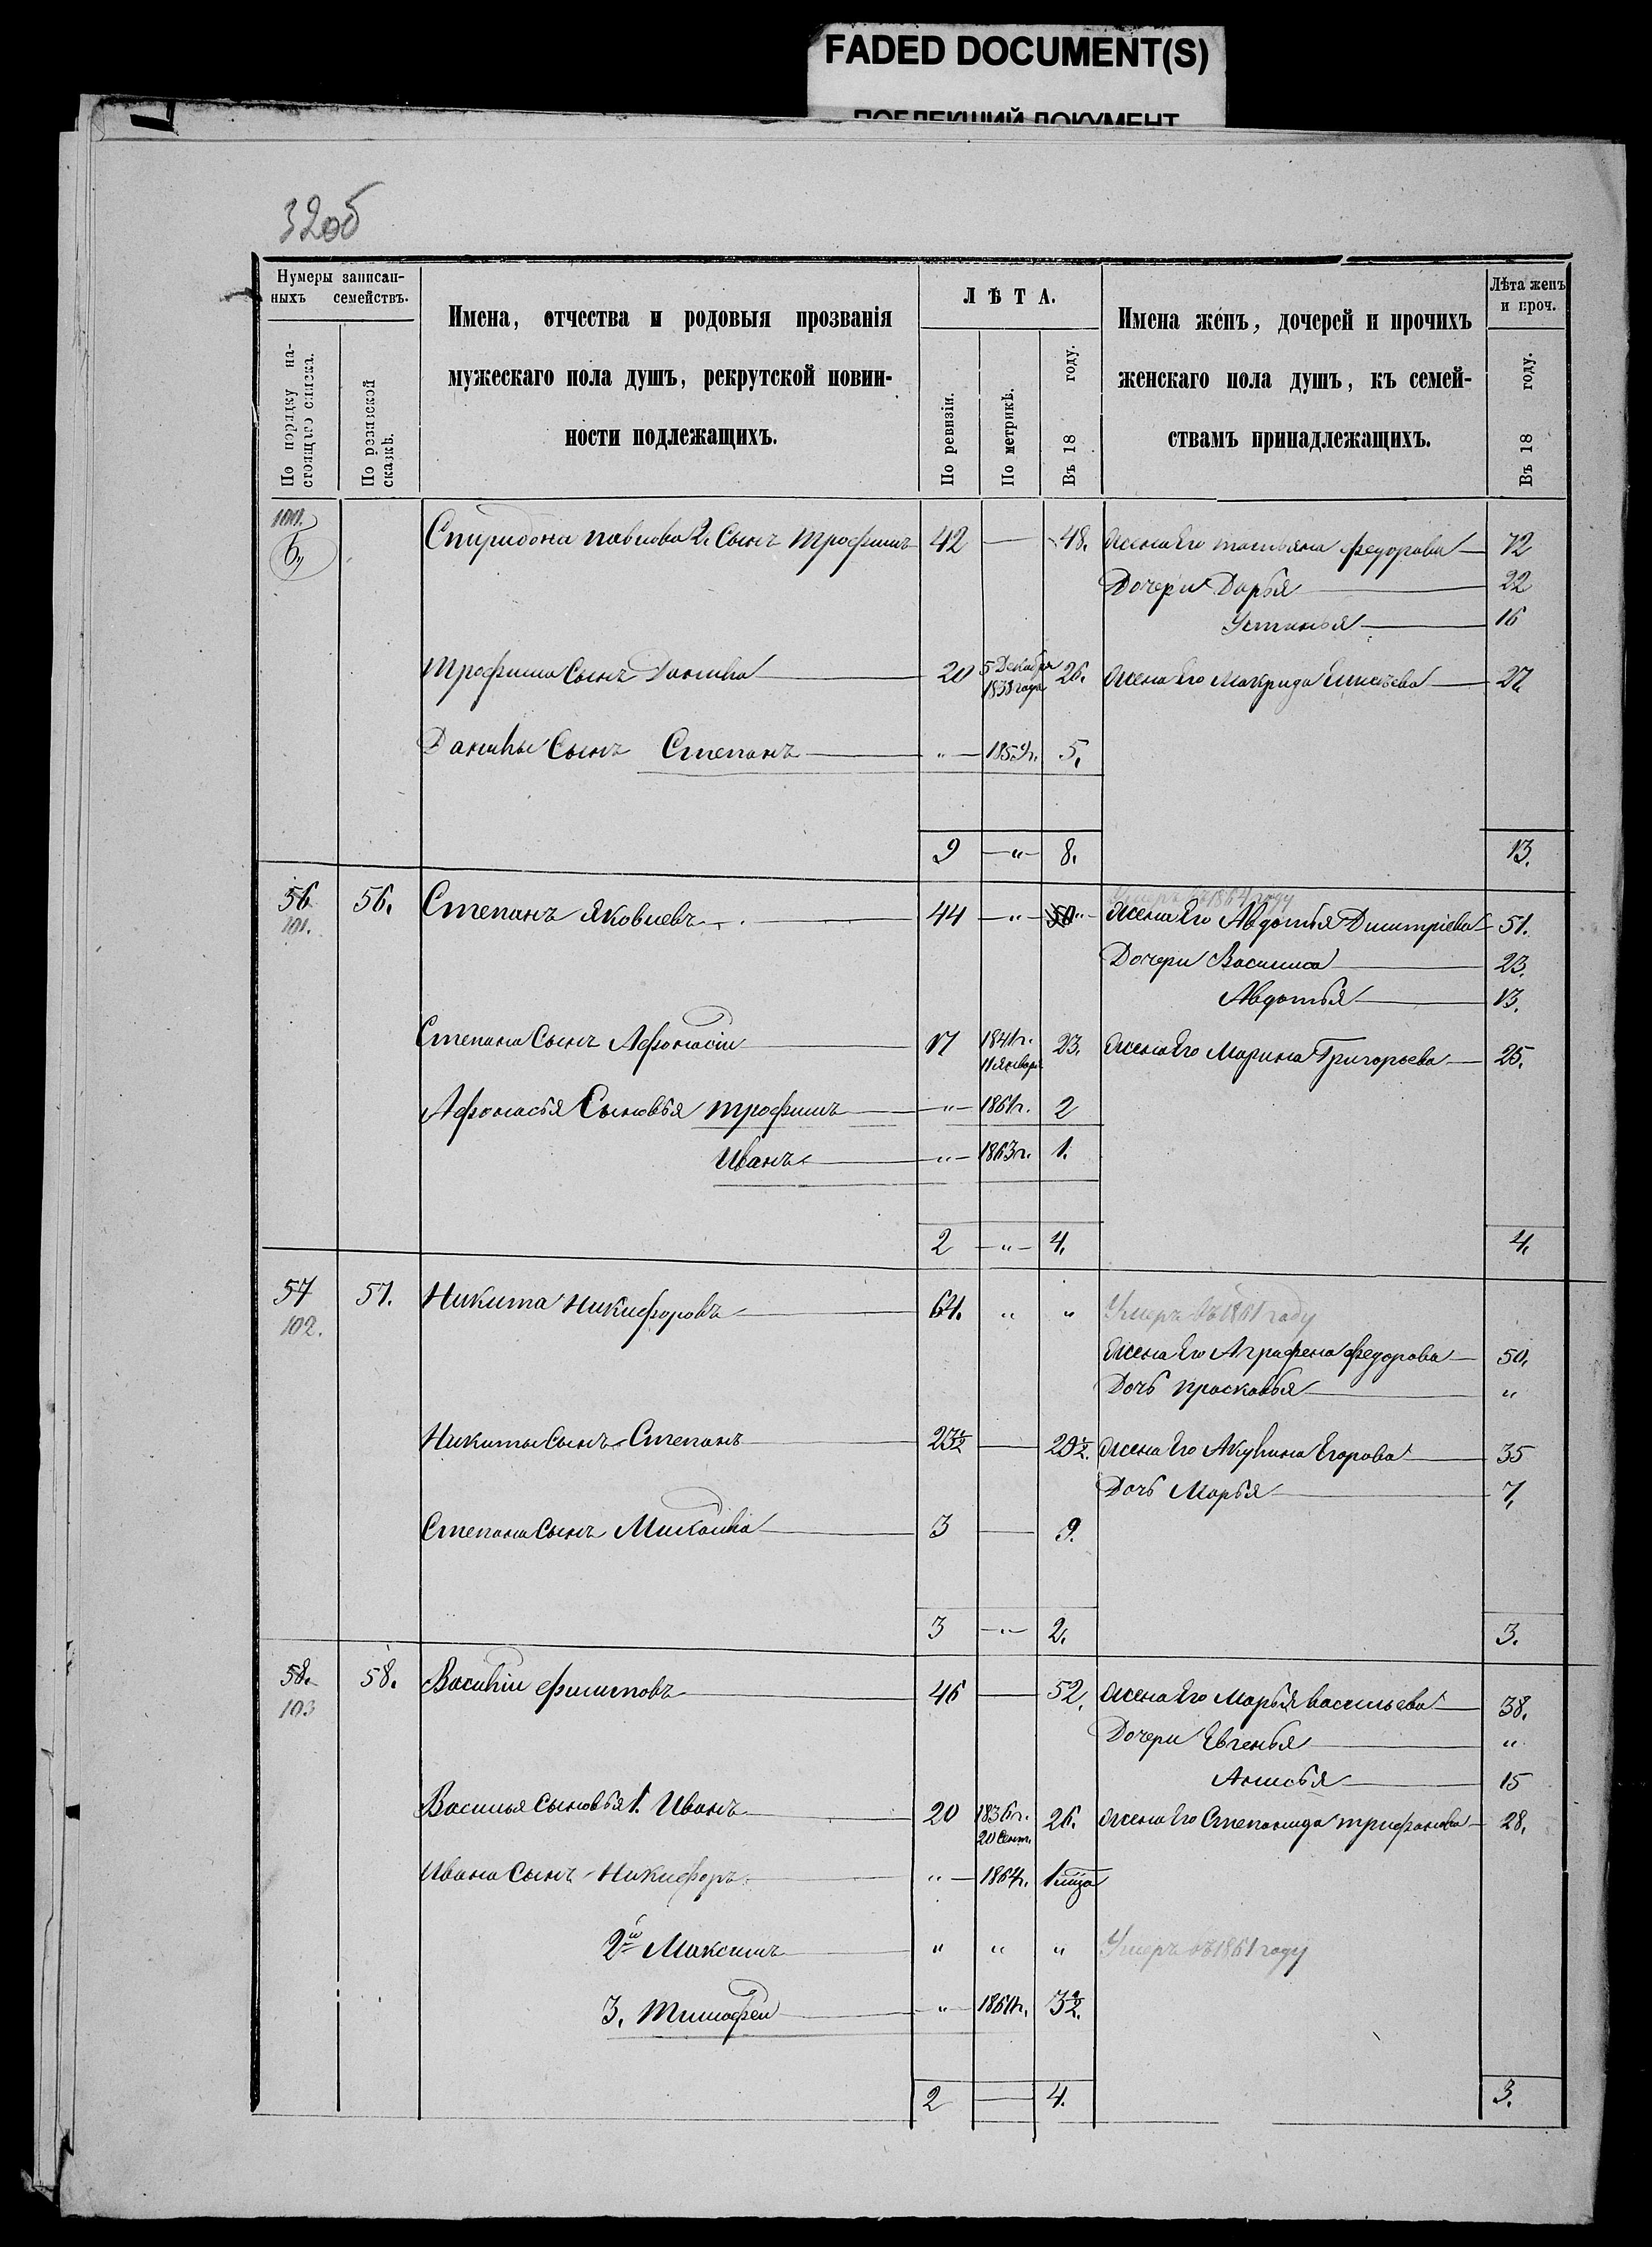 FADED DOCUMENT(S)
ПОБЛЕКШИЙ ДОКУМЕНТ
32об
Нумеры записан-
ныхъ семействъ.
По порядку на-
стоящаго списка.
По ревизской
сказкѣ.
Имена, отчества и родовыя прозванія
мужескаго пола душъ, рекрутской повин-
ности подлежащихъ.
ЛѢТА.
По ревизіи.
По метрикѣ.
Въ 18 году.
Имена женъ, дочерей и прочихъ
женскаго пола душъ, къ семей-
ствамъ принадлежащихъ.
Лѣта женъ
и проч.
Въ 18 году.
100.
6,, Спиридона павлова 2. Сынъ Трофимъ 42 — 48. Жена Его татьяна федорова 42
Дочери Дарья 22
Устинья 16
Трофима Сынъ Данила 20 5 Декабря 1838 года 26. Жена Его Макрида 27.
Данилы Сынъ Степанъ " 1859г. 5.
9 — " — 8. 13.
Умеръ въ 1864 году
56 56. Степанъ Яковлевъ 44 — " — 50 Жена Его Авдотья Димитріева 51.
101.
Дочери Василиса 23.
Авдотья 13.
Степана Сынъ Афонасіи 17 1841г. 11 Января 23. Жена Его Марина Григорьева 25.
Афонасья Сыновья трофимъ " 1861г. 2
Иванъ " 1863г. 1.
2 — " — 4. 4.
57 57. Никита Никифоровъ 64. " " Умеръ въ 1861 году
102.
Жена Его Аграфена федорова 50.
Дочь прасковья "
Никиты Сынъ Степанъ 23½ — 29½. Жена Его Акулина Егорова 35
Дочь Марья 7,
Степана Сынъ Михаила 3 — 9.
3 — " — 2. 3.
58. 58. Василіи филиповъ 46 — 52. Жена Его Марья васильева 38.
103
Дочери Евгенья "
Анисья 15
Василья Сыновья 1. Иванъ 20 1836г. 20 Сент. 26. Жена Его Степанида трифанова 28.
Ивана Сынъ Никифоръ " 1864г. 1 мѣца
2й Максимъ " " " Умеръ въ 1861 году
3. Тимофеи " 1861г. 3½.
2 — 4. 3.